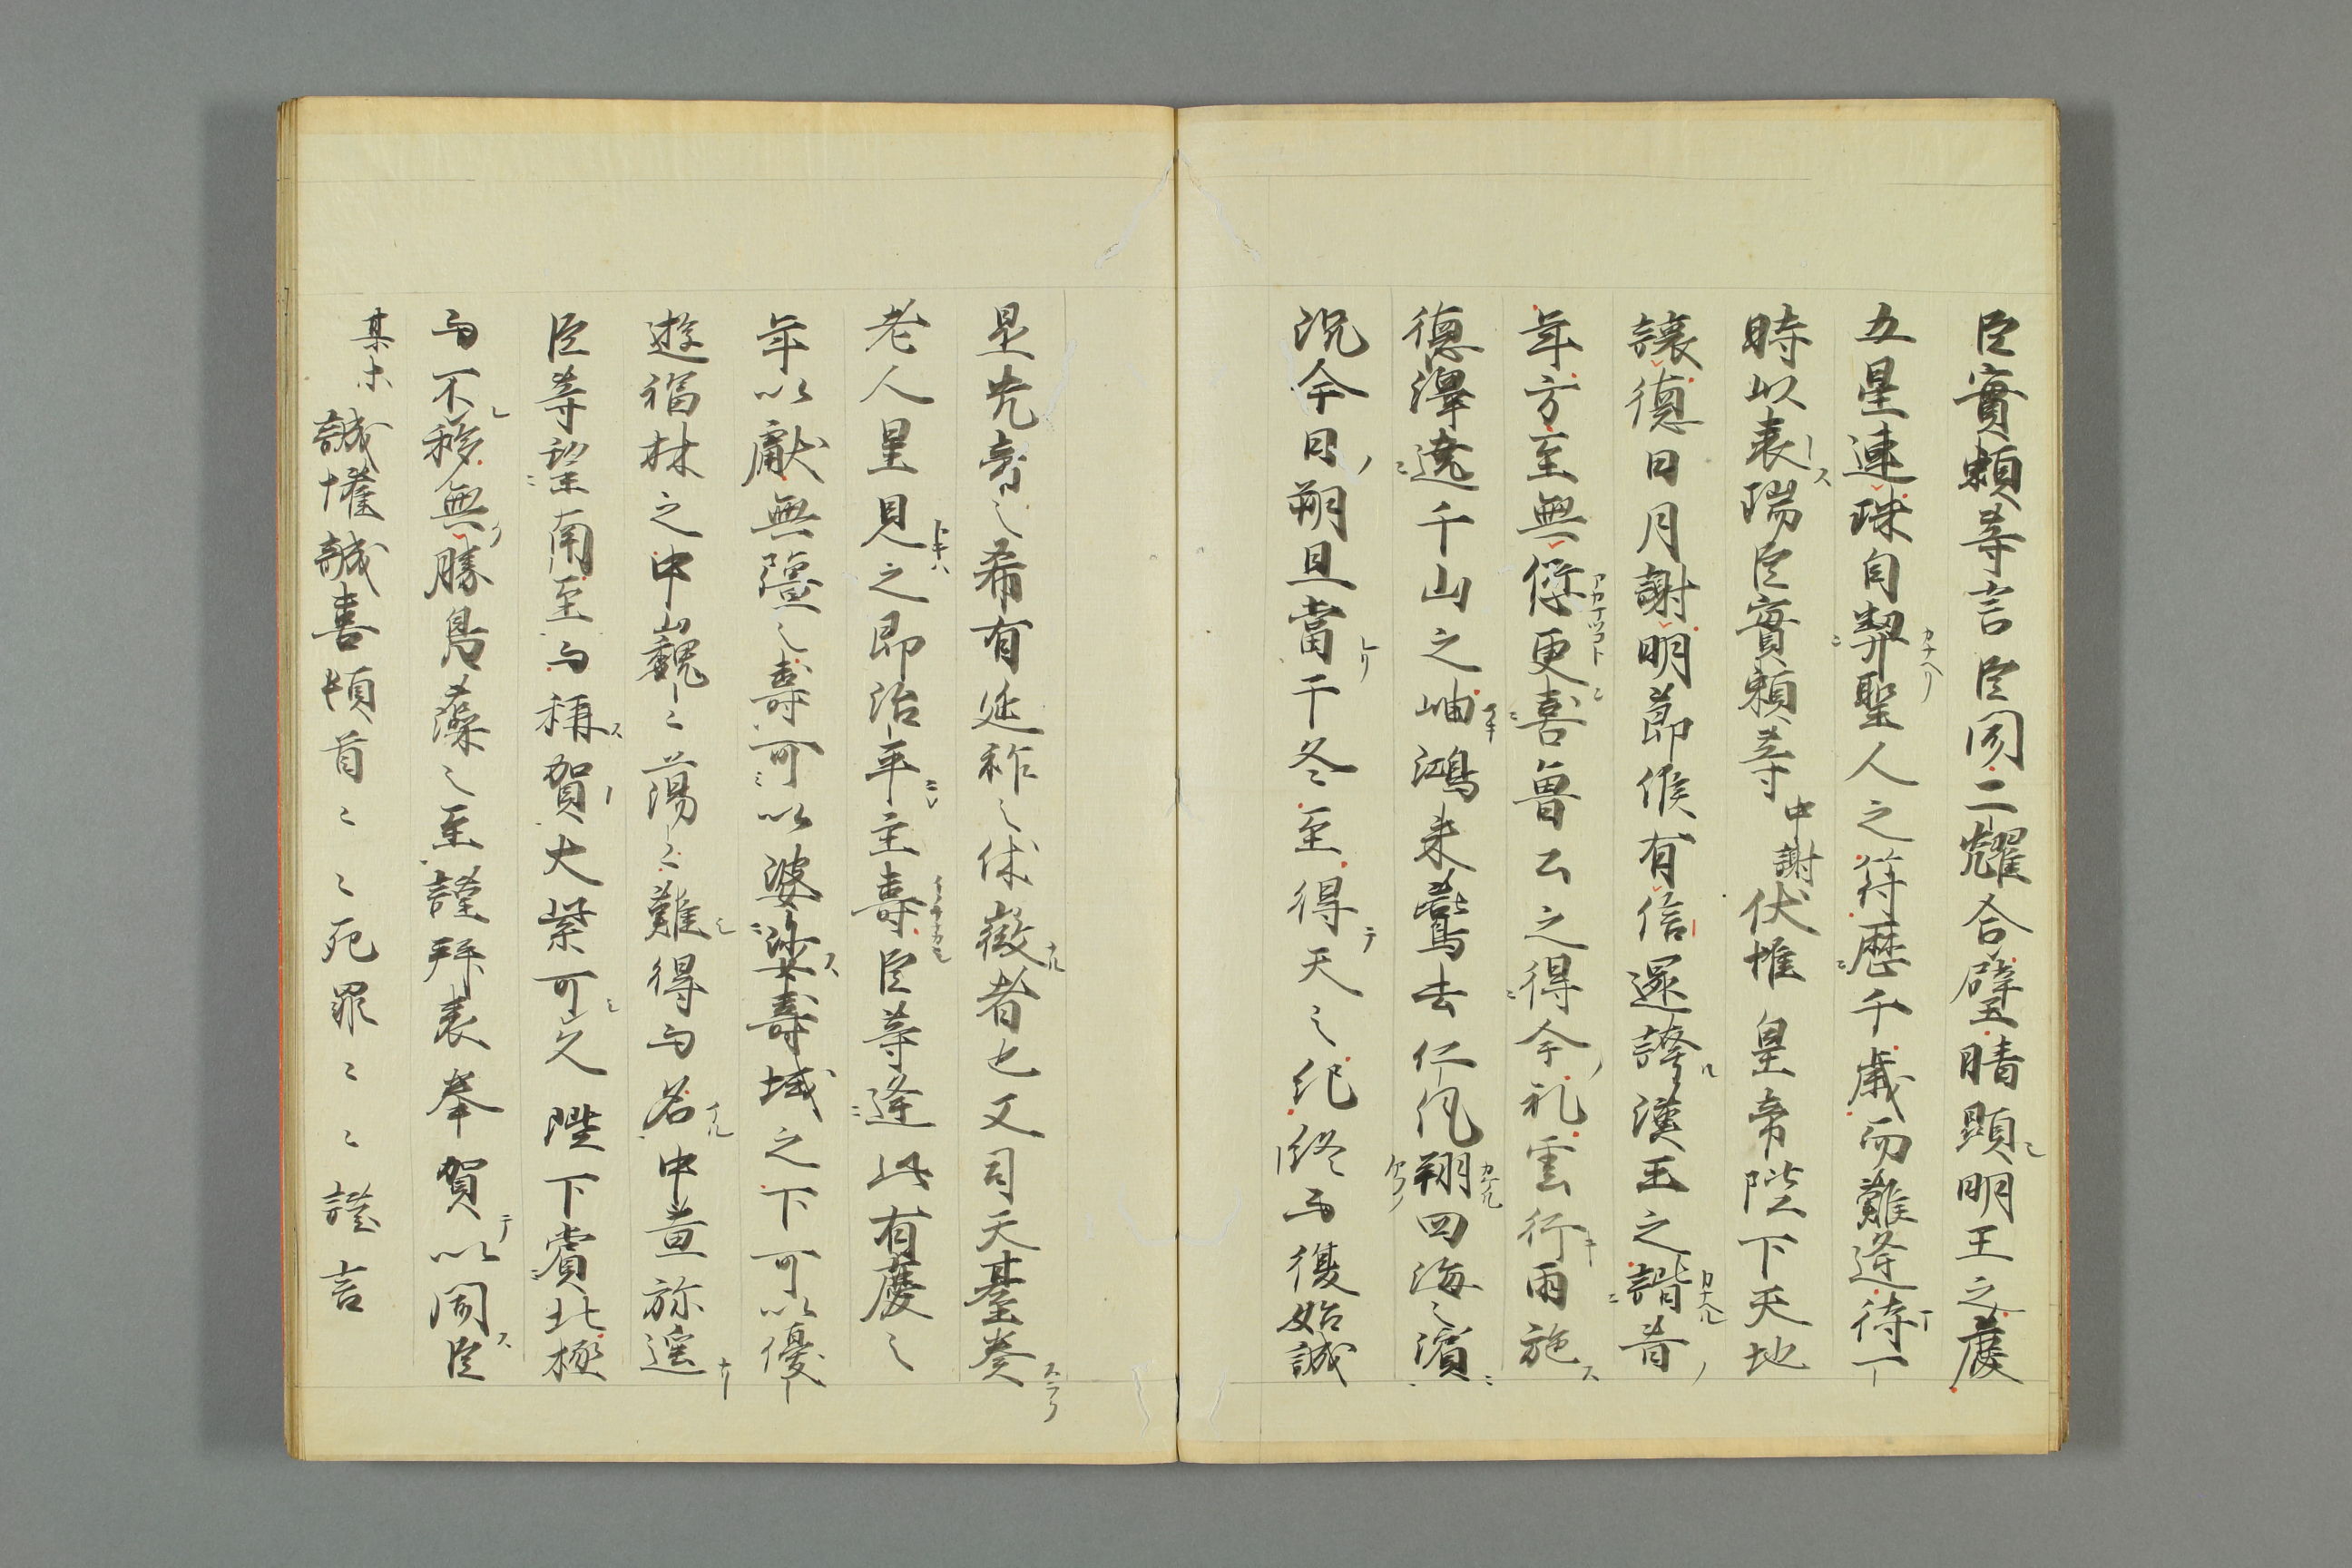 臣實頼等言臣聞二耀合璧晴顕明王之慶
五星連珠自契聖人之符歴千歳而難逢待一
時以表瑞臣實頼等中謝伏惟皇帝陛下天地
讓德日月謝明節候有信遥譏漢王之諧昔
年方至無愆更喜魯公之得今礼雲行雨施
德澤遶千山之岫鴻来鷰去仁風翔四海之濱
况今日朔旦當于冬至得天之紀終而復始誠
是先帝之希有延祚之休徴者也又司天臺奏
老人星見之即治平主壽臣等逢此有慶之
年以獻無彊之壽可可以婆娑壽域之下可以優
遊福林之中巍々蕩々難得而名中壹祢遥
臣等望南至而稱賀大業可久陛下賓北極
而不移無勝鳬藻之至謹拜表奉賀以聞臣
某等誠懽誠喜頓首々々死罪々々謹言